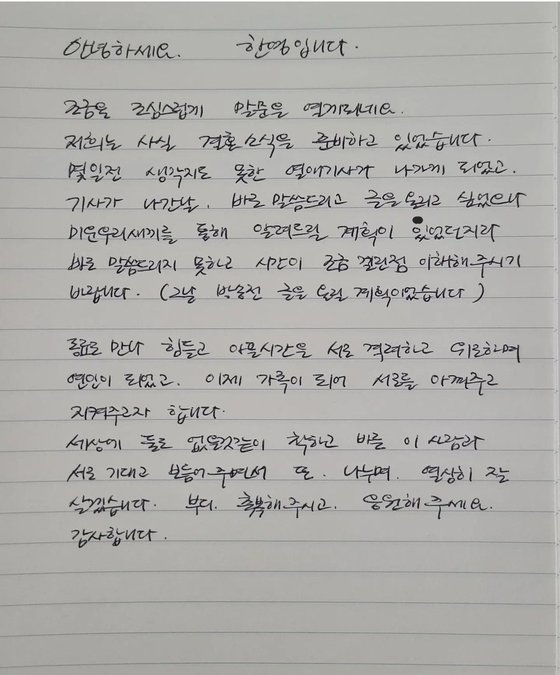 안녕하세요. 한영입니다.
조금은 조심스럽게 말문을 열게되네요.
저희는 사실 결혼 소식을 준비하고 있었습니다.
몇일전 생각지도 못한 열애기사가 나가게 되었고.
기사가 나간날. 바로 말씀드리고 글을 올리고 싶었으나
미운우리새끼를 통해 알려드릴 계획이 있었던지라
바로 말씀드리지 못하고 시간이 조금 걸린점 이해해주시기
바랍니다. (그날 방송전 글을 올릴 계획이었습니다)
동료로 만나 힘들고 아픈시간을 서로 격려하고 위로하며
연인이 되었고. 이제 가족이 되어 서로를 아껴주고
지켜주고자 합니다.
세상에 둘도 없을것같이 착하고 바른 이 사람과
서로 기대고 보듬어주면서 또. 나누며. 열심히 잘
살겠습니다. 부디. 축복해주시고. 응원해주세요.
감사합니다.